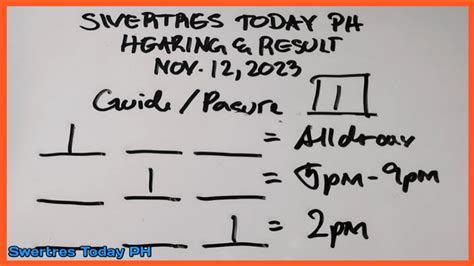 SWERTRES TODAY PH
HEARING & RESULT
NOV. 12, 2023
Guide/Pasure 1
1 __ __ = All draw
__ 1 __ = 5pm-9pm
__ __ 1 = 2pm
Swertres Today PH